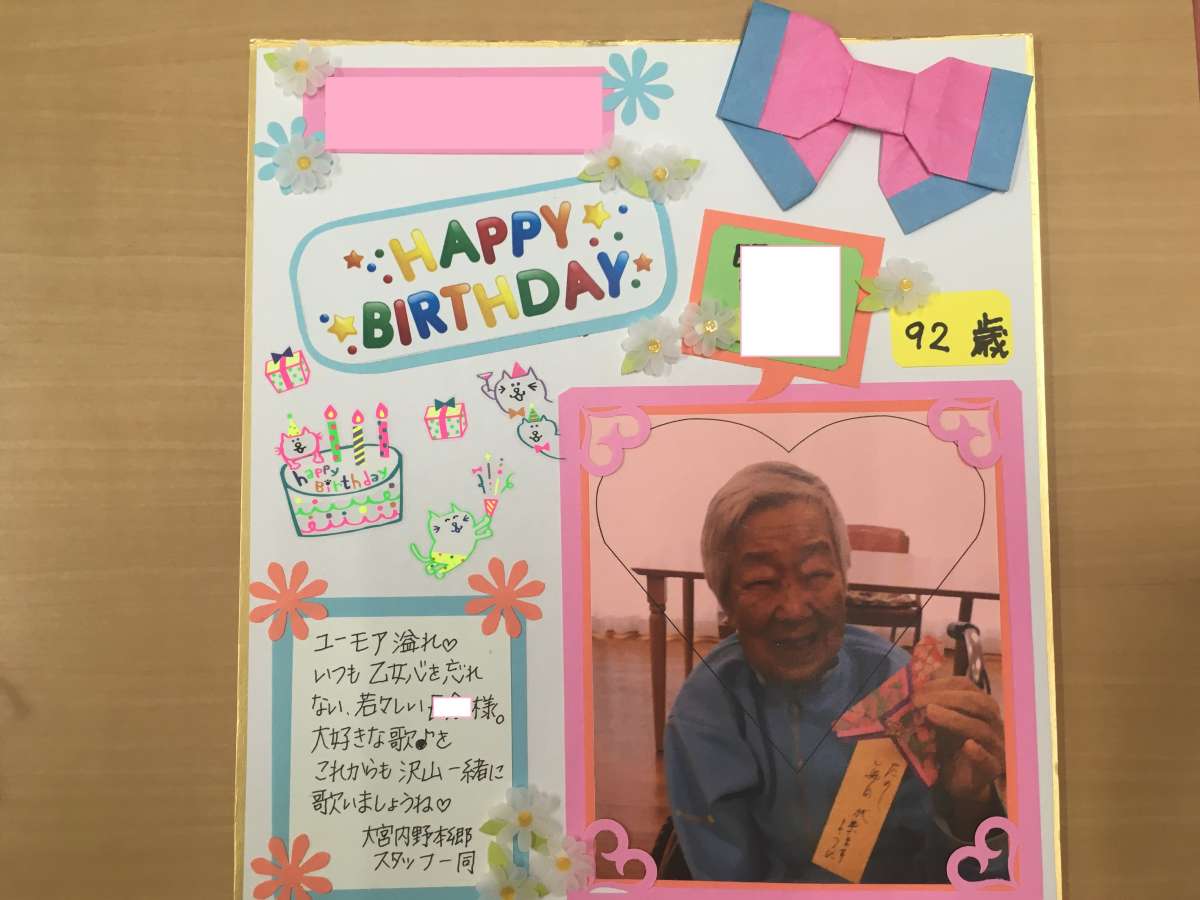 HAPPY
BIRTHDAY
92 歳
happy
Birthday
ユーモア溢れ♡
いつも乙女心を忘れ
ない、若々しい 様。
大好きな歌♪を
これからも沢山一緒に
歌いましょうね♡
大宮内野本郷
スタッフ一同